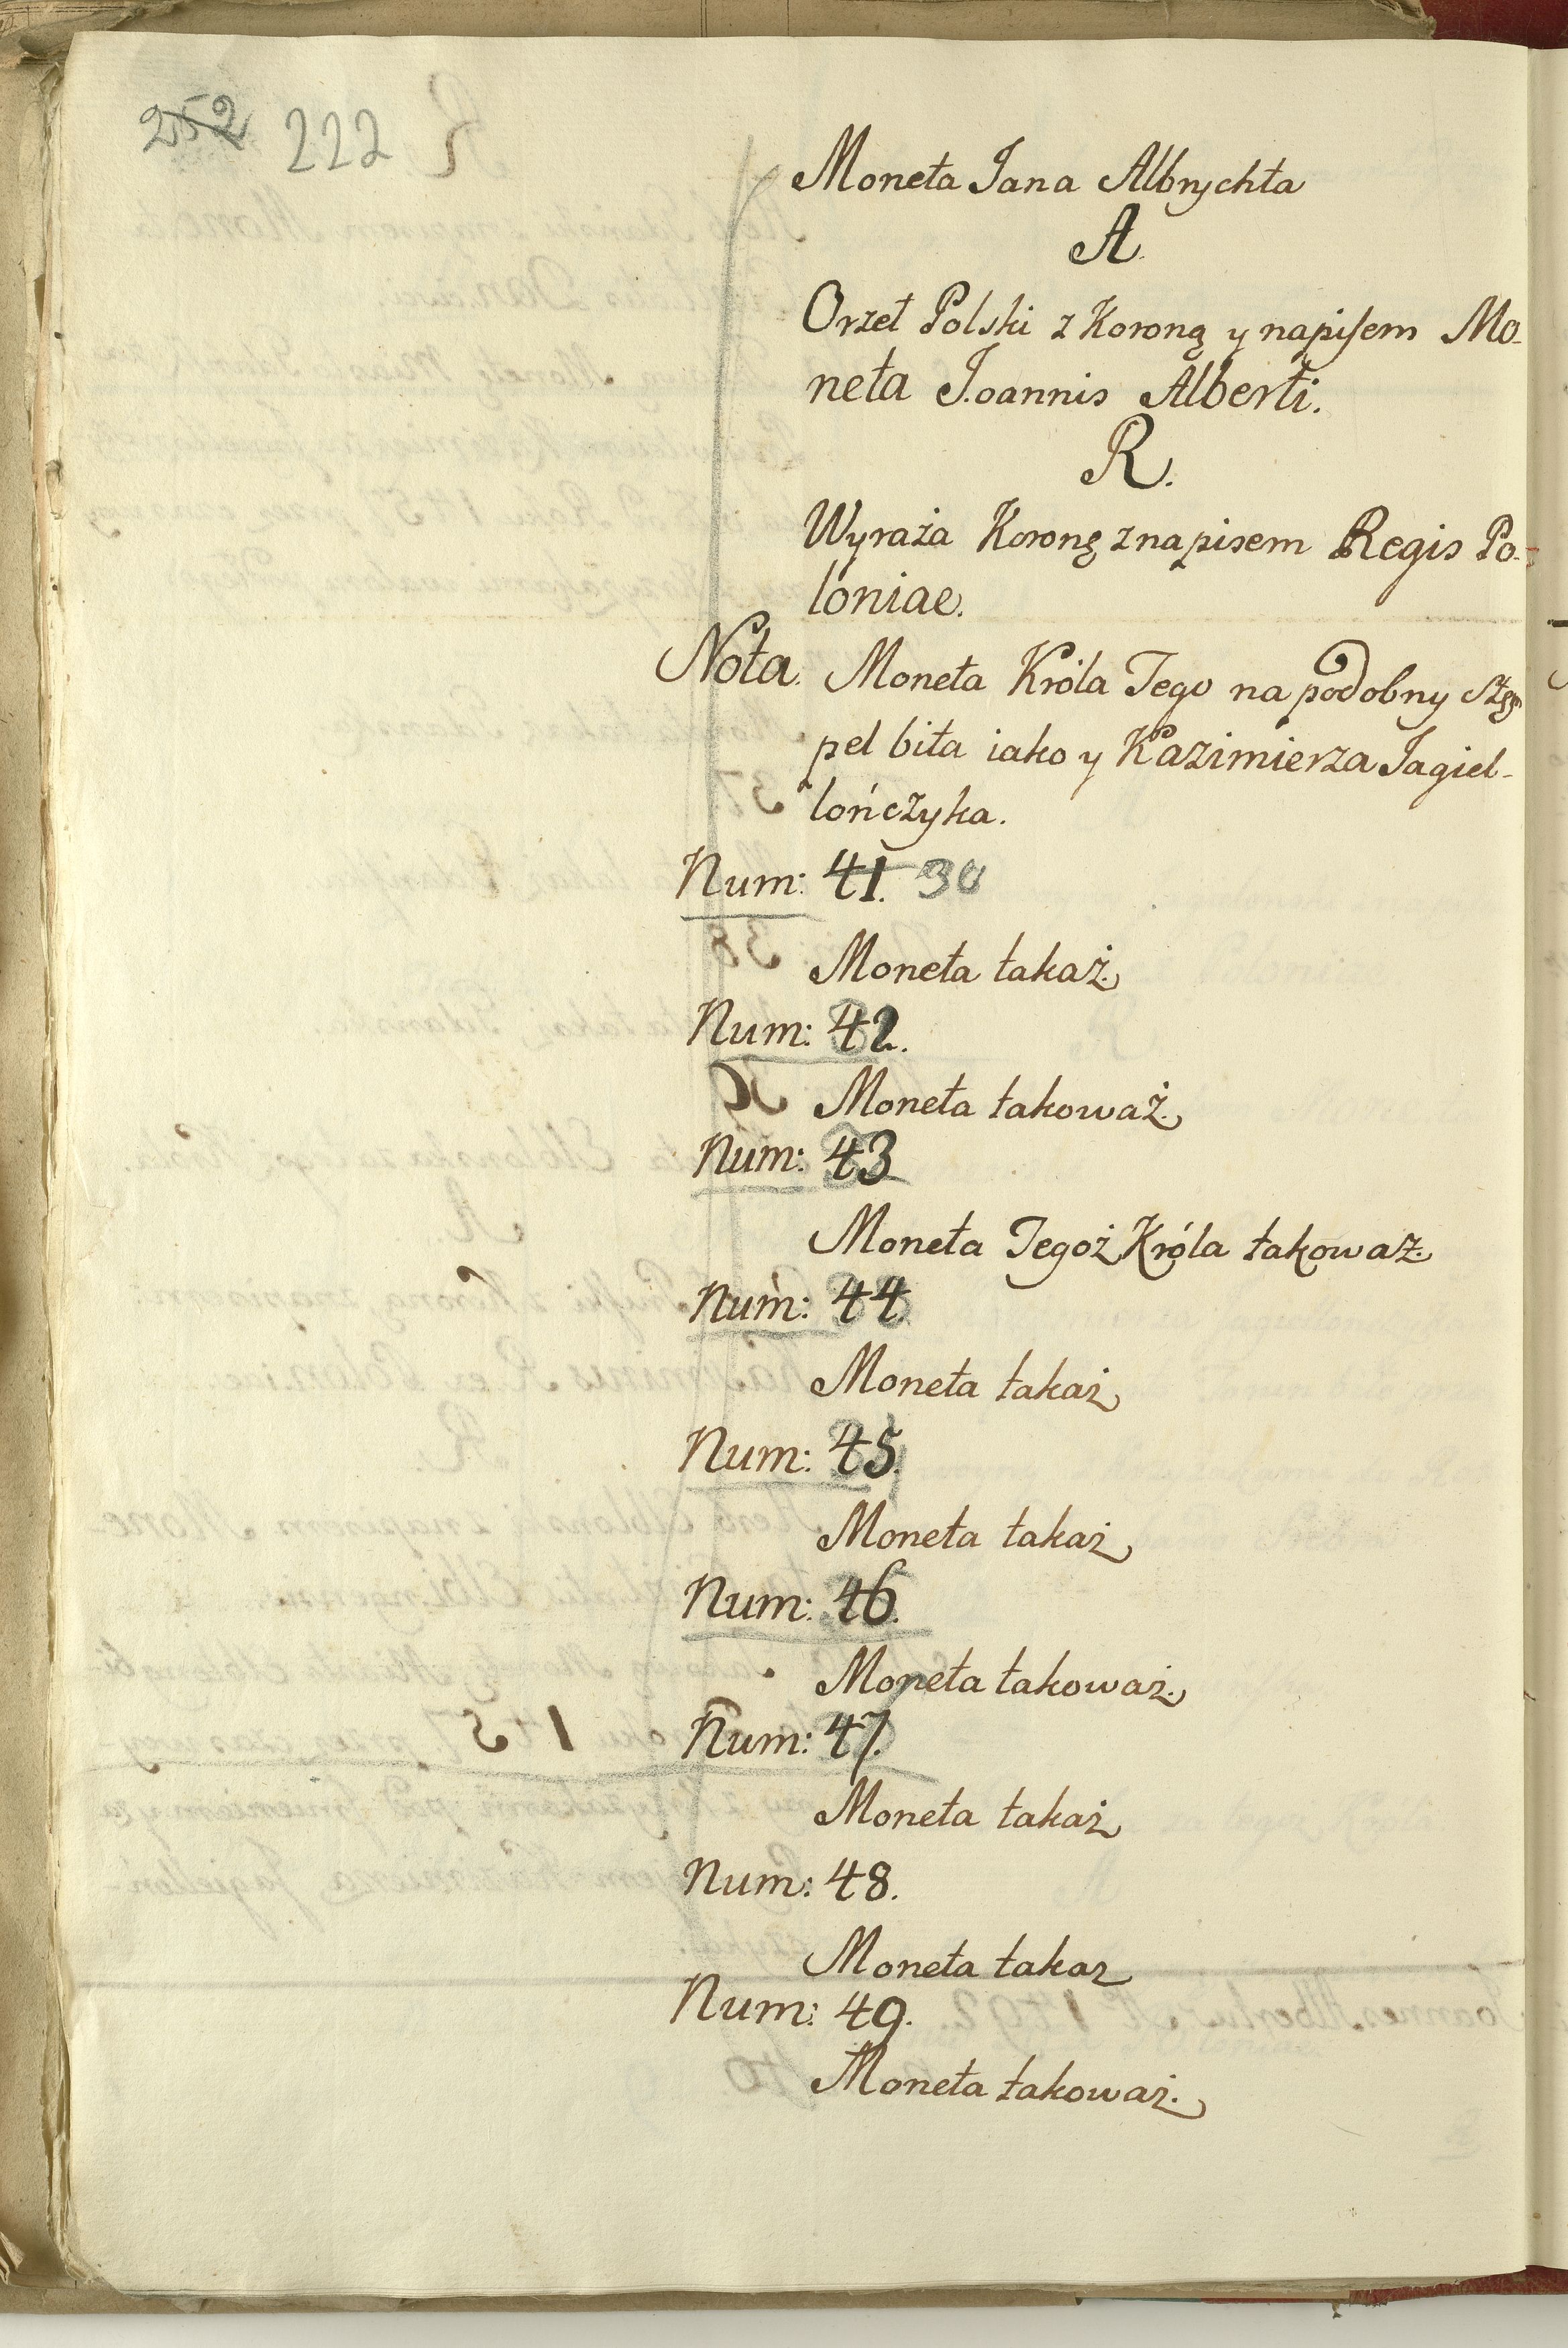 252 222
Moneta Jana Albrychta
A.
Orzeł Polski z Koroną y napisem Mo-
neta Joannis Alberti.
R.
Wyraża Koronę z napisem Regis Po-
loniae.
Nota. Moneta Króla Tego na podobny Sztę
pel bita iako y Kazimierza Jagiel-
lończyka.
Num: 41. 30
Moneta takaż.
Num: 42.
Moneta takoważ.
Num: 43
Moneta Tegoż Króla takoważ.
Num: 44.
Moneta takaż
Num: 45.
Moneta takaż
Num: 46.
Moneta takoważ.
Num: 47.
Moneta takaż
Num: 48.
Moneta takaz
Num: 49.
Moneta takoważ.